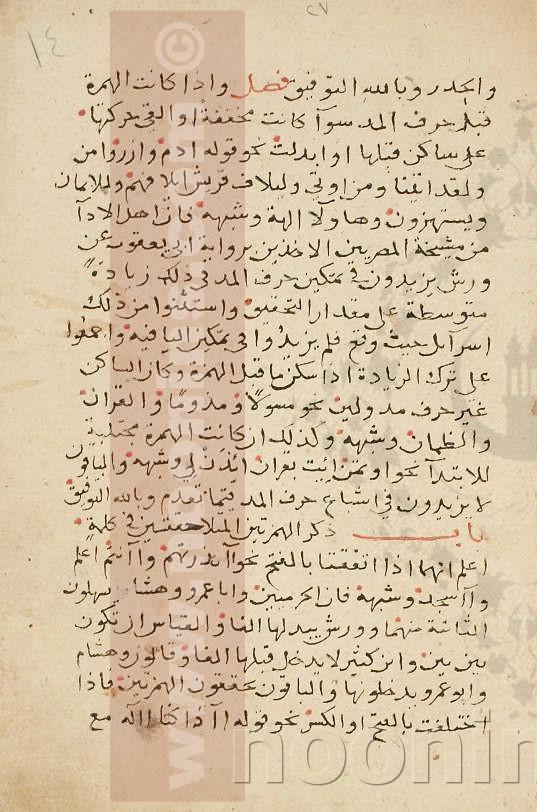 ٢٧
١٤
والحدر وبالله التوفيق فصل واذا كانت الهمزة
قبل حرف المد سوآ كانت محققة او القى حركتها
على ساكن قبلها او ابدلت نحو قوله ادم وازر وامن
ولقد اتينا ومن اوتي وليلاف قريش ايلافهم وللايمان
ويستهزون وهاولا الهة وشبهه فان اهل الادآ
من مشيخة المصريين الاخذين برواية ابي يعقوب عن
ورش يزيدون في تمكين حرف المد في ذلك زيادة
متوسطة على مقدار التحقيق واستثنوا من ذلك
اسرآيل حيث وقع فلم يزيدوا في تمكين اليا فيه واجمعوا
على ترك الزيادة اذا سكن ما قبل الهمزة وكان الساكن
غير حرف مد ولين نحو مسولا ومذوما والقران
والظمان وشبهه وكذلك ان كانت الهمزة مجتلبة
للابتدآ نحو اوتمن ايت بقران ائذن لي وشبهه والباقون
لا يزيدون في اشباع حرف المد فيما تقدم وبالله التوفيق
باب ذكر الهمزتين المتلاصقتين في كلمة
اعلم انهما اذا اتفقتا بالفتح نحو أانذرتهم وأانتم اعلم
وأاسجد وشبهه فان الحرميين وابا عمرو وهشاما يسهلون
الثانية منهما وورش يبدلها الفا والقياس ان تكون
بين بين وابن كثير لا يدخل قبلها الفا وقالون وهشام
وابو عمرو يدخلونها والباقون يحققون الهمزتين فاذا
اختلفت بالفتح والكسر نحو قوله أاذا كنا أاله مع
noonin